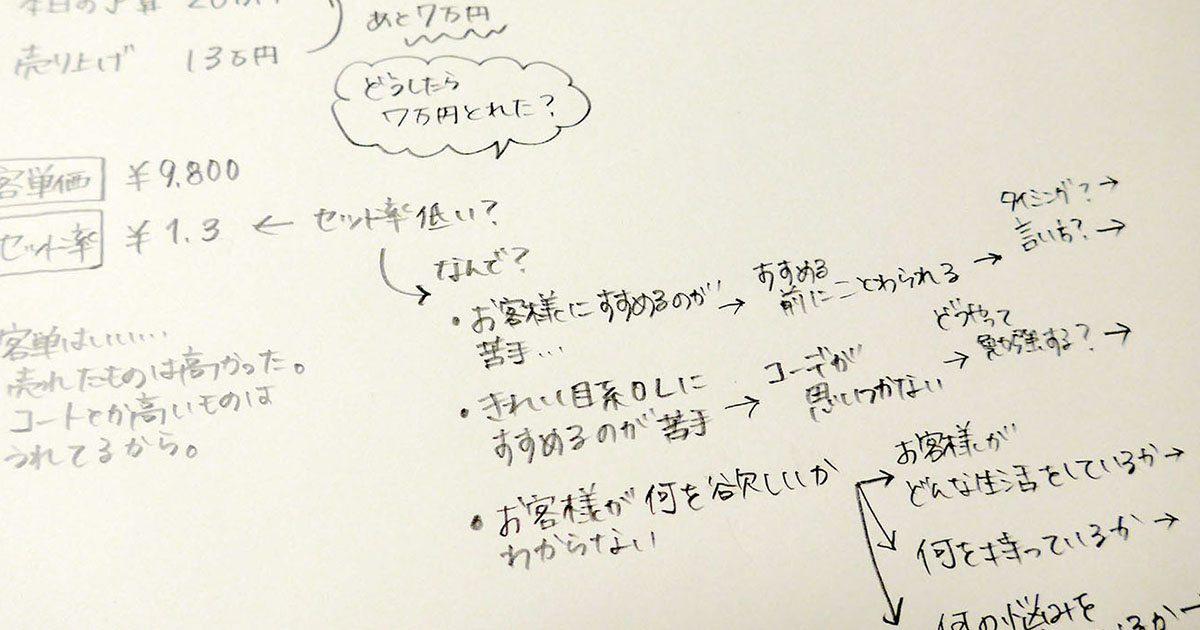 本日の予算 20万円
売り上げ 13万円
あと7万円
どうしたら
7万円とれた?
客単価 ¥9,800
セット率 ¥1.3 ← セット率低い?
なんで?
・お客様にすすめるのが
苦手…
→ おすすめる
前にことわられる
→ タイミング?→
言い方?→
・きれい目系OLに
すすめるのが苦手
→ コーデが
思いつかない
→ どうやって
勉強する?→
・お客様が何を欲しいか
わからない
お客様が
どんな生活をしているか→
何を持っているか→
何の悩みを
いるか→
客単はいい…
売れたものは高かった。
コートとか高いものは
うれてるから。